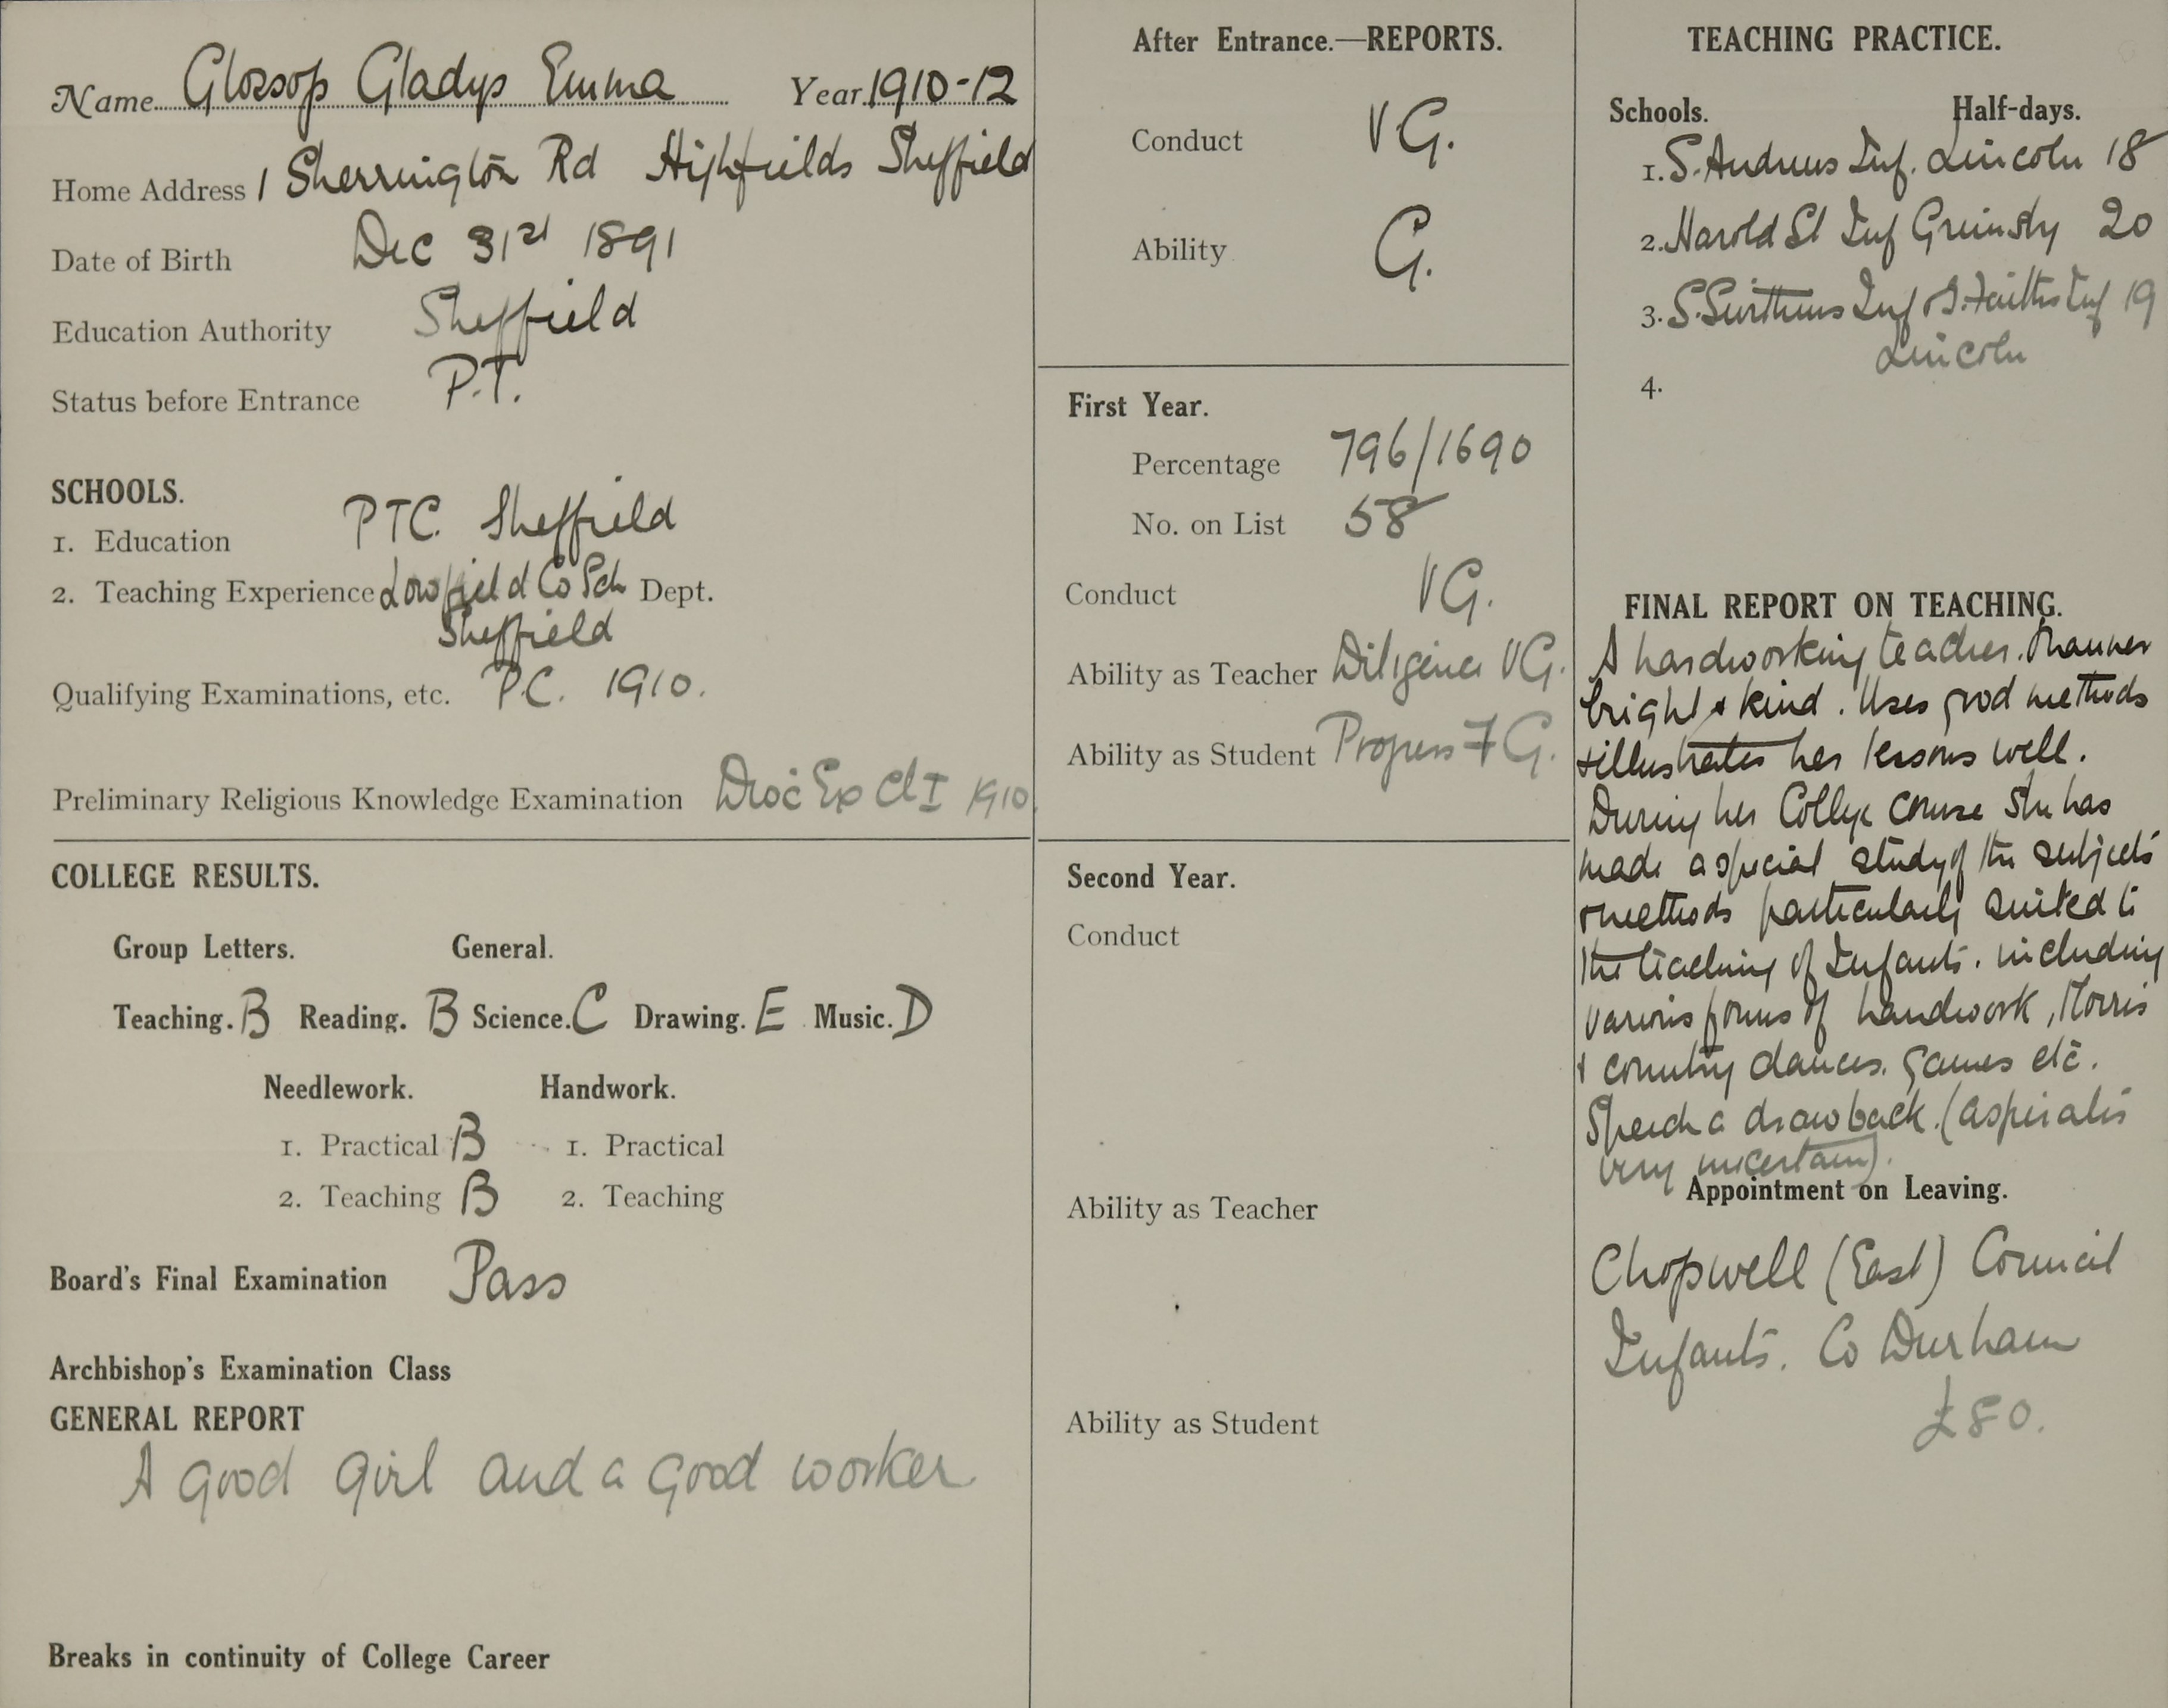 Name Glossop Gladys Emma Year 1910-12
Home Address 1 Sherrington Rd Highfields Sheffield
Date of Birth Dec 31st 1891
Education Authority Sheffield
Status before Entrance P.T.
SCHOOLS.
1. Education PTC. Sheffield
2. Teaching Experience Lowfield Co Sch Dept.
Sheffield
Qualifying Examinations, etc. P.C. 1910.
Preliminary Religious Knowledge Examination Dioc Ex Cl I 1910.
COLLEGE RESULTS.
Group Letters. General.
Teaching. B Reading. B Science. C Drawing. E Music. D
Needlework. Handwork.
1. Practical B 1. Practical
2. Teaching B 2. Teaching
Board's Final Examination Pass
Archbishop's Examination Class
GENERAL REPORT
A good girl and a good worker
Breaks in continuity of College Career
After Entrance.—REPORTS.
Conduct VG.
Ability G.
First Year.
Percentage 796/1690
No. on List 58
Conduct VG.
Ability as Teacher Diligence VG.
Ability as Student Progress F G.
Second Year.
Conduct
Ability as Teacher
Ability as Student
TEACHING PRACTICE.
Schools. Half-days.
1. S. Andrews Inf. Lincoln 18
2. Harold St Inf Grimsby 20
3. S. Swithins Inf & S. Faiths Inf 19
Lincoln
4.
FINAL REPORT ON TEACHING.
A hardworking teacher. Manner
bright & kind. Uses good methods
& illustrates her lessons well.
During her College course she has
made a special study of the subjects
& methods particularly suited to
the teaching of Infants. including
various forms of handwork, Morris
& country dances. games etc.
Speech a drawback. (aspirates
very uncertain).
Appointment on Leaving.
Chopwell (East) Council
Infants. Co Durham
£80.